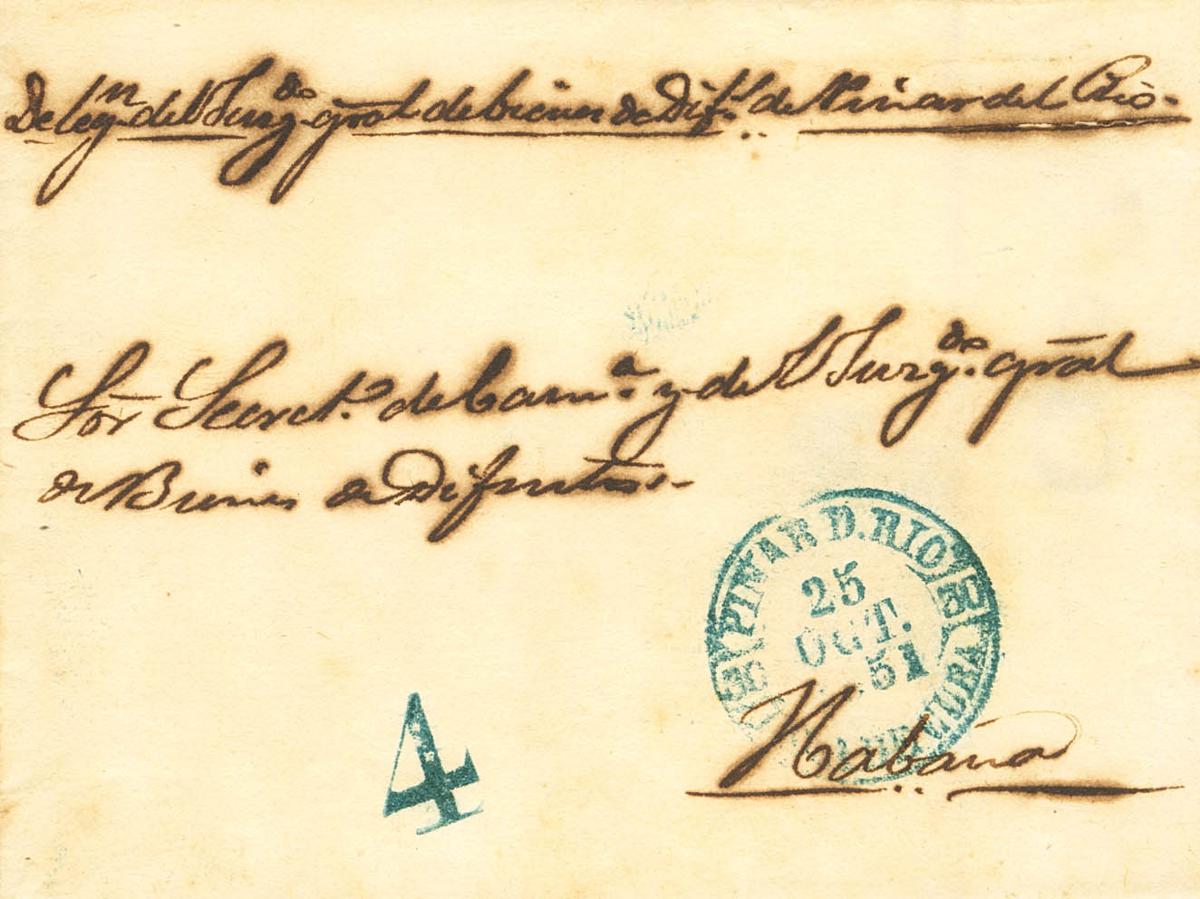 Deleg.n del Juzg.do gral de bienes de Dif.s de Pinar del Rio.
Sõr Secret.o de Cam.a y del Juzg.do gral
de Bienes de Difuntos.
PINAR D. RIO
25
OCT.
51
CUBA
Habana
4